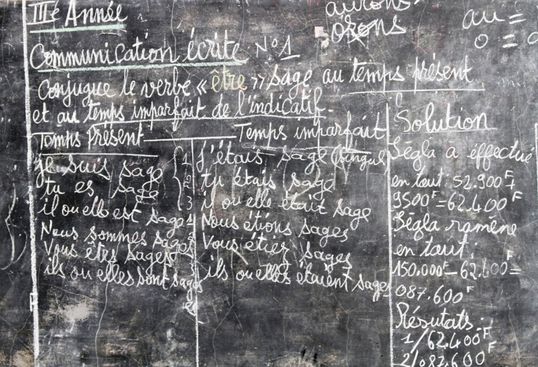 IIIè Année
Communication écrite N°1
Conjugue le verbe « être » sage au temps présent
et au temps imparfait de l'indicatif.
Temps Présent
je suis sage
tu es sage
il ou elle est sage
Nous sommes sages
Vous êtes sages
ils ou elles sont sages
Temps imparfait
J'étais sage
tu étais sage
il ou elle était sage
Nous étions sages
Vous étiez sages
ils ou elles étaient sages
aurons
orons
au =
o =
Solution
Ségla a effectué
en tout: 52.900F+
9500F=62.400F
Ségla ramène
en tout
150.000F-62.400=
087.600F
Résutats:
1/62.400F
2/087.600F